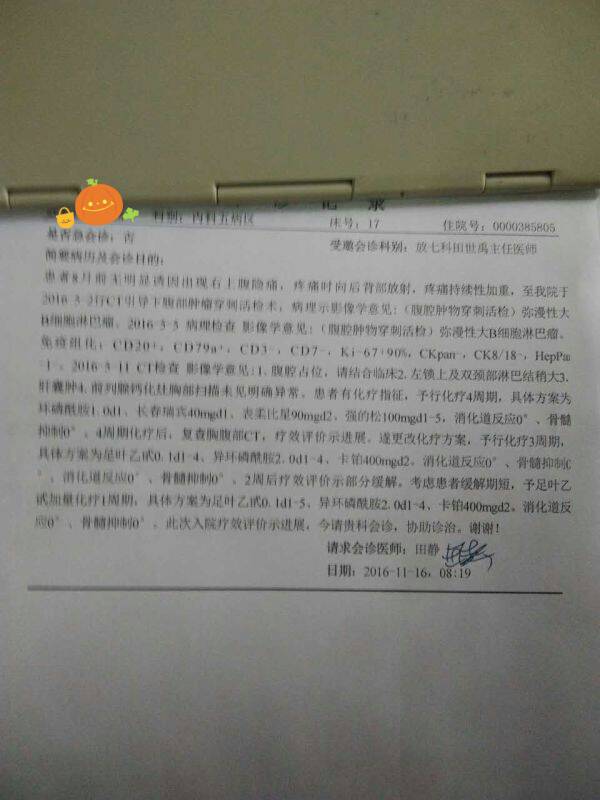 诊 记 录
科别：内科五病区 床号：17 住院号：0000385805
是否急会诊：否 受邀会诊科别：放七科田世禹主任医师
简要病历及会诊目的：
患者8月前无明显诱因出现右上腹隐痛，疼痛时向后背部放射，疼痛持续性加重，至我院于
2016-3-2行CT引导下腹部肿瘤穿刺活检术，病理示影像学意见：（腹腔肿物穿刺活检）弥漫性大
B细胞淋巴瘤。2016-3-5 病理检查 影像学意见：（腹腔肿物穿刺活检）弥漫性大B细胞淋巴瘤。
免疫组化：CD20+，CD79a+，CD3-，CD7-，Ki-67+90%，CKpan-，CK8/18-，HepPar
-1-。2016-3-11 CT检查 影像学意见：1.腹腔占位，请结合临床2.左锁上及双颈部淋巴结稍大3.
肝囊肿4.前列腺钙化灶胸部扫描未见明确异常。患者有化疗指征，予行化疗4周期，具体方案为
环磷酰胺1.0d1、长春瑞宾40mgd1、表柔比星90mgd2、强的松100mgd1-5，消化道反应0°、骨髓
抑制0°。4周期化疗后，复查胸腹部CT，疗效评价示进展。遂更改化疗方案，予行化疗3周期，
具体方案为足叶乙甙0.1d1-4、异环磷酰胺2.0d1-4、卡铂400mgd2。消化道反应0°、骨髓抑制0
°，消化道反应0°、骨髓抑制0°。2周后疗效评价示部分缓解。考虑患者缓解期短，予足叶乙
甙加量化疗1周期，具体方案为足叶乙甙0.1d1-5、异环磷酰胺2.0d1-4、卡铂400mgd2。消化道反
应0°、骨髓抑制0°。此次入院疗效评价示进展，今请贵科会诊，协助诊治。谢谢！
请求会诊医师：田静
日期：2016-11-16，08:19